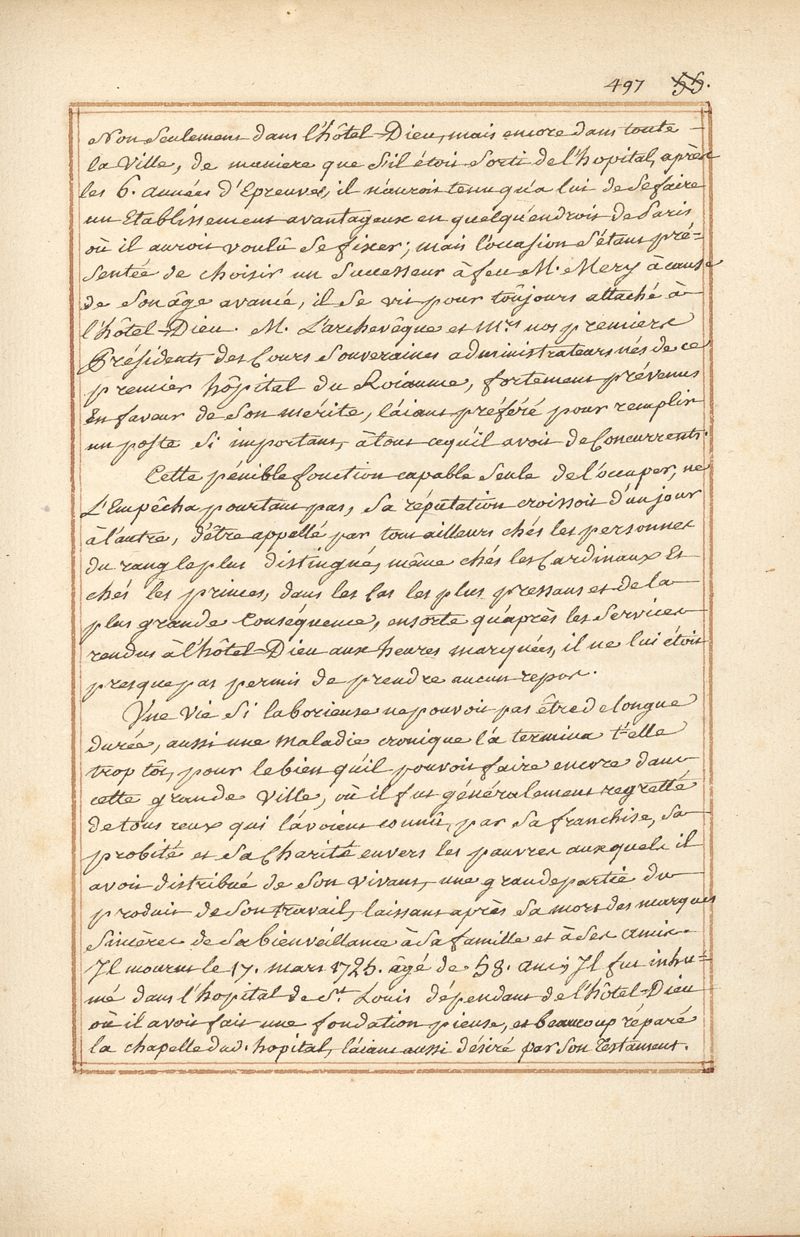 497 55.
Non Seulement dans l'hôtel-Dieu, mais encore dans toute
la Ville, de maniere que s'il étoit Sorti de l'hopital, après
les 6. années d'Epreuves, il n'auroit tenu qu'a lui de se faire
un Etablissement avantageux en quelqu'endroit de Paris
où il auroit voulû se fixer; mais l'occasion s'étant pré-
sentée de choisir un Successeur à feu M. Mery à cause
de son âge avancé, il se vit pour toûjours attaché à
l'hôtel-Dieu. M. L'archevêque et Mrs nos premiers
Présidents des Cours Souveraines administrateurs nés de ce
premier hôpital du Roiaume, fortement prévenus
En faveur de son mérite, l'aiant préféré pour remplir
un poste si important, à tout ce qu'il avoit de Concurrents.
Cette pénible fonction capable seule de l'occuper, ne
L'Empêcha pourtant pas, sa réputation croissoit d'un jour
à l'autre, d'être appellé par tout ailleurs chés les personnes
du rang le plus distingué, même chés les Cardinaux Et
chés les princes, dans les Cas les plus pressans et de la
plus grande Conséquence, ensorte qu'après les Services
rendus à l'hôtel-Dieu aux heures marquées, il ne lui étoit
presque pas permis de prendre aucun repos.
Une Vie si laborieuse ne pouvoit pas être de longue
durée, aussi une maladie cronique l'a termina t'elle
trop tôt, pour le bien qu'il pouvoit faire encore dans
cette grande Ville, où il fut généralement regretté
de tous ceux qui l'avoient connû, par sa franchise, sa
probité et sa Charité envers les pauvres auxquels il
avoit distribué de son vivant, une grande partie du
produit de son travail, laissant après sa mort des marques
sincères de sa bienveillance à sa famille et à ses amis.
Il mourut le 17. mars 1725. âgé de 58. ans; Il fut inhu-
mé dans l'hopital de St. Louis dépendant de l'hôtel-Dieu
où il avoit fait une fondation pieuse, et beaucoup réparé
la chapelle dud. hopital, l'aiant aussi désiré par son Testament.